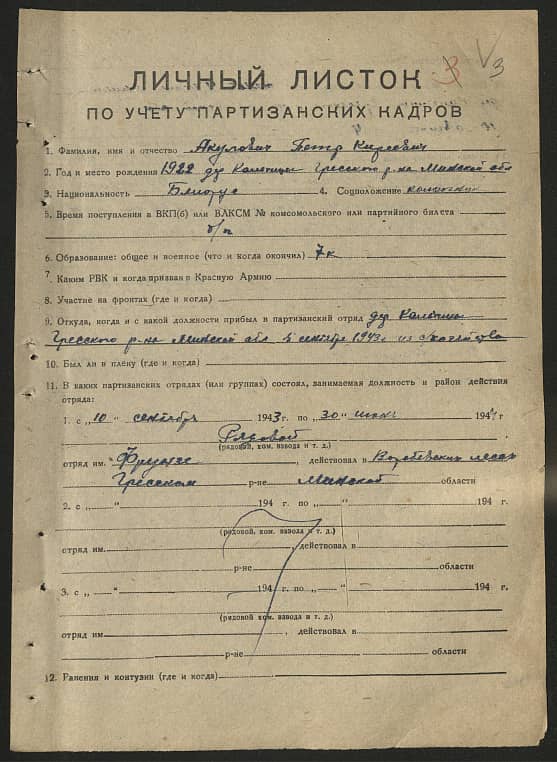 3
3
ЛИЧНЫЙ ЛИСТОК
ПО УЧЕТУ ПАРТИЗАНСКИХ КАДРОВ
1. Фамилия, имя и отчество Акулович Петр Киреевич
2. Год и место рождения 1922 дер Калочицы Гресского р-на Минской обл
3. Национальность Белорус 4. Соцположение
5. Время поступления в ВКП(б) или ВЛКСМ № комсомольского или партийного билета
б/п
6. Образование: общее и военное (что и когда окончил) 7 к
7. Каким РВК и когда призван в Красную Армию
8. Участие на фронтах (где и когда)
9. Откуда, когда и с какой должности прибыл в партизанский отряд дер
Гресского р-на Минской обл сентября 1943 г из с/хозяйства
10. Был ли в плену (где и когда)
11. В каких партизанских отрядах (или группах) состоял, занимаемая должность и район действия
отряда:
1. с „10" сентября 1943 г. по „30" июня 1944 г
Рядовой
(рядовой, ком. взвода и т. д.)
отряд им. Фрунзе, действовал в лесах
Гресском р-не Минской области
2. с „ " 194 г. по „ " 194 г.
(рядовой, ком. взвода и т. д.)
отряд им. , действовал в
р-не области
3. с „ " 194 г. по „ " 194 г.
(рядовой, ком. взвода и т. д.)
отряд им , действовал в
р-не области
12. Ранения и контузии (где и когда)